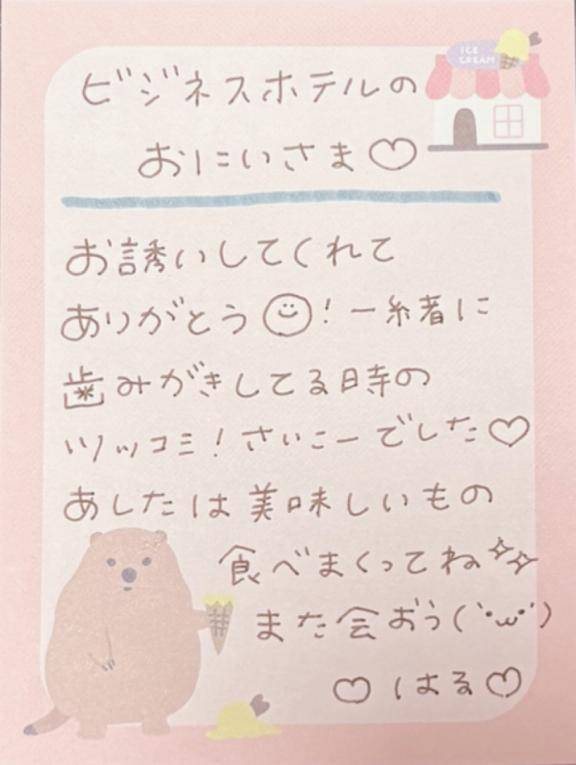 ICE
CREAM
ビジネスホテルの
おにいさま♡
お誘いしてくれて
ありがとう☺!一緒に
歯みがきしてる時の
ツッコミ!さいこーでした♡
あしたは美味しいもの
食べまくってね✨
また会おう(˙ω˙)
♡はる♡